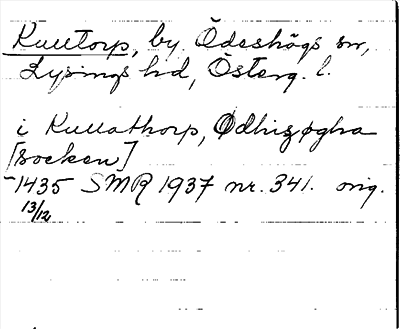 Kulltorp, by. Ödeshögs sn,
Lysings hd, Österg. l.
i Kullathorp, Ødhizøgha
[socken]
1435 SMR 1937 nr. 341. orig.
13/12